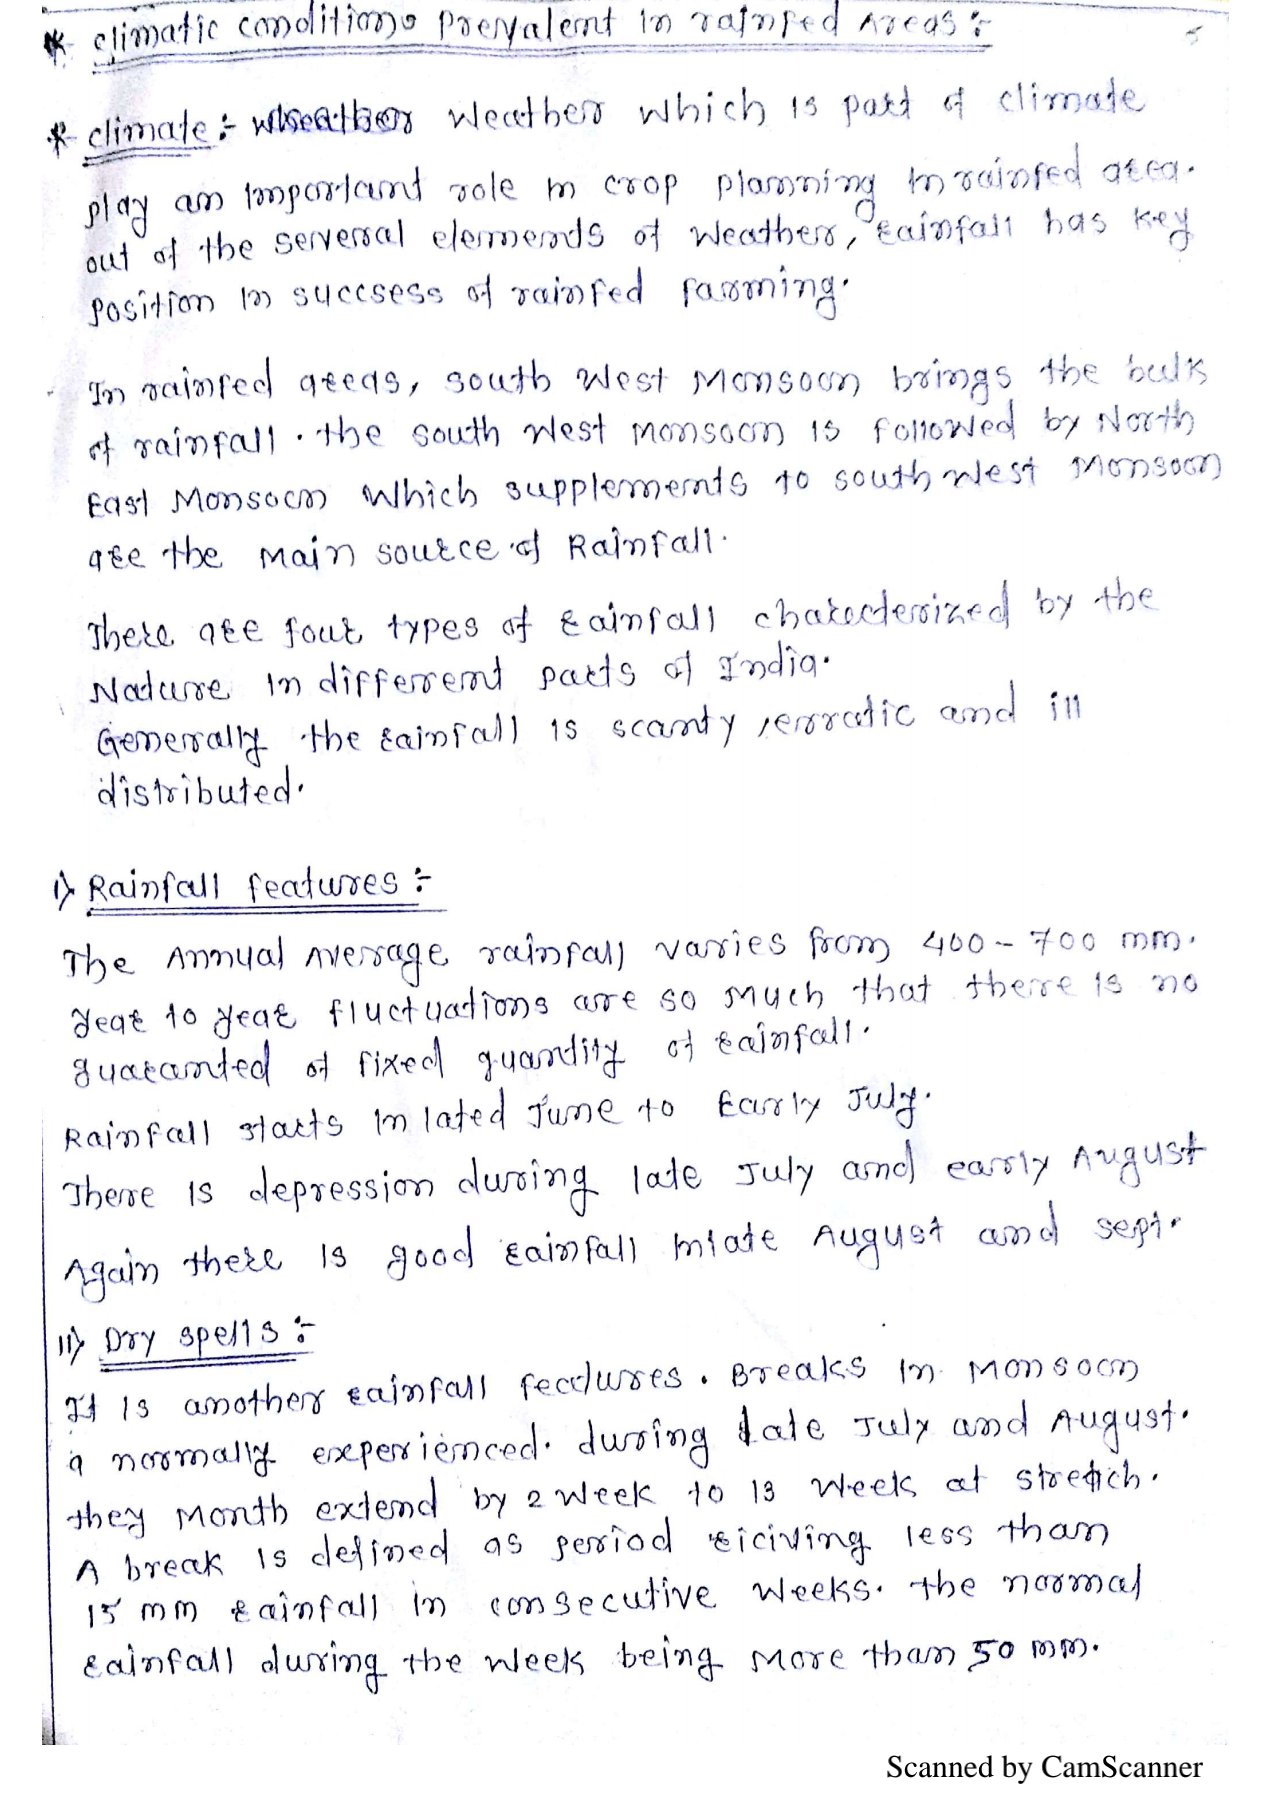 * climatic conditions Prevalent in rainfed Areas :-
5
* climate :- Weather which is part of climate
play an important role in crop planning in rainfed area.
out of the serveral elements of weather, rainfall has key
position in succsess of rainfed farming.
In rainfed areas, south west Monsoon brings the bulk
of rainfall. the south west monsoon is followed by North
East Monsoon which supplements to south west Monsoon
are the main source of Rainfall.
There are four types of rainfall charecterized by the
Nature in different parts of India.
Generally the rainfall is scanty, erratic and ill
distributed.
i) Rainfall features :-
The Annual Average rainfall varies from 400 - 700 mm.
year to year fluctuations are so much that there is no
guaranted of fixed quantity of rainfall.
Rainfall starts in lated June to Early July.
There is depression during late July and early August
Again there is good rainfall in late August and sept.
ii) Dry spells :-
It is another rainfall features. Breaks in Monsoon
a normally experienced. during late July and August.
they Month extend by 2 week to 13 week at stretch.
A break is defined as period riciving less than
15 mm rainfall in consecutive weeks. the normal
rainfall during the week being more than 50 mm.
Scanned by CamScanner